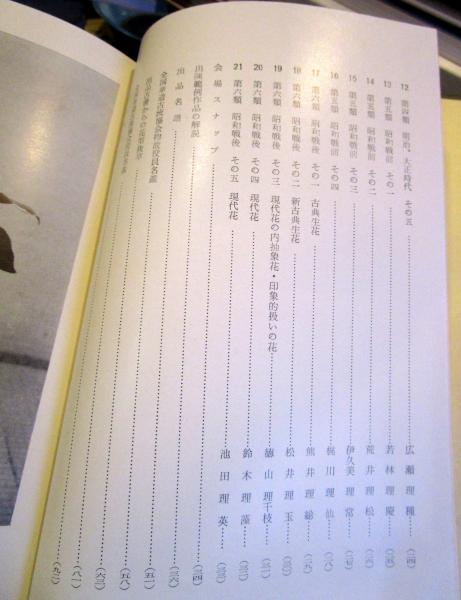 12 第四類 明治、大正時代 その五 広瀬理種 (二四)
13 第五類 昭和戦前 その一 若林理慶 (二五)
14 第五類 昭和戦前 その二 荒井理松 (二六)
15 第五類 昭和戦前 その三 伊久美理常 (二七)
16 第五類 昭和戦前 その四 梶川理仙 (二八)
17 第六類 昭和戦後 その一 古典生花 熊井理総 (二九)
18 第六類 昭和戦後 その二 新古典生花 松井理玉 (三〇)
19 第六類 昭和戦後 その三 現代花の内抽象花・印象的扱いの花 徳山理千枝 (三一)
20 第六類 昭和戦後 その四 現代花 鈴木理藻 (三二)
21 第六類 昭和戦後 その五 現代花 池田理英 (三三)
会場スナップ (三四)
出陳範例作品の解説 (三六)
出品名譜 (五一)
全国華道古流協会物故役員名鑑 (五八)